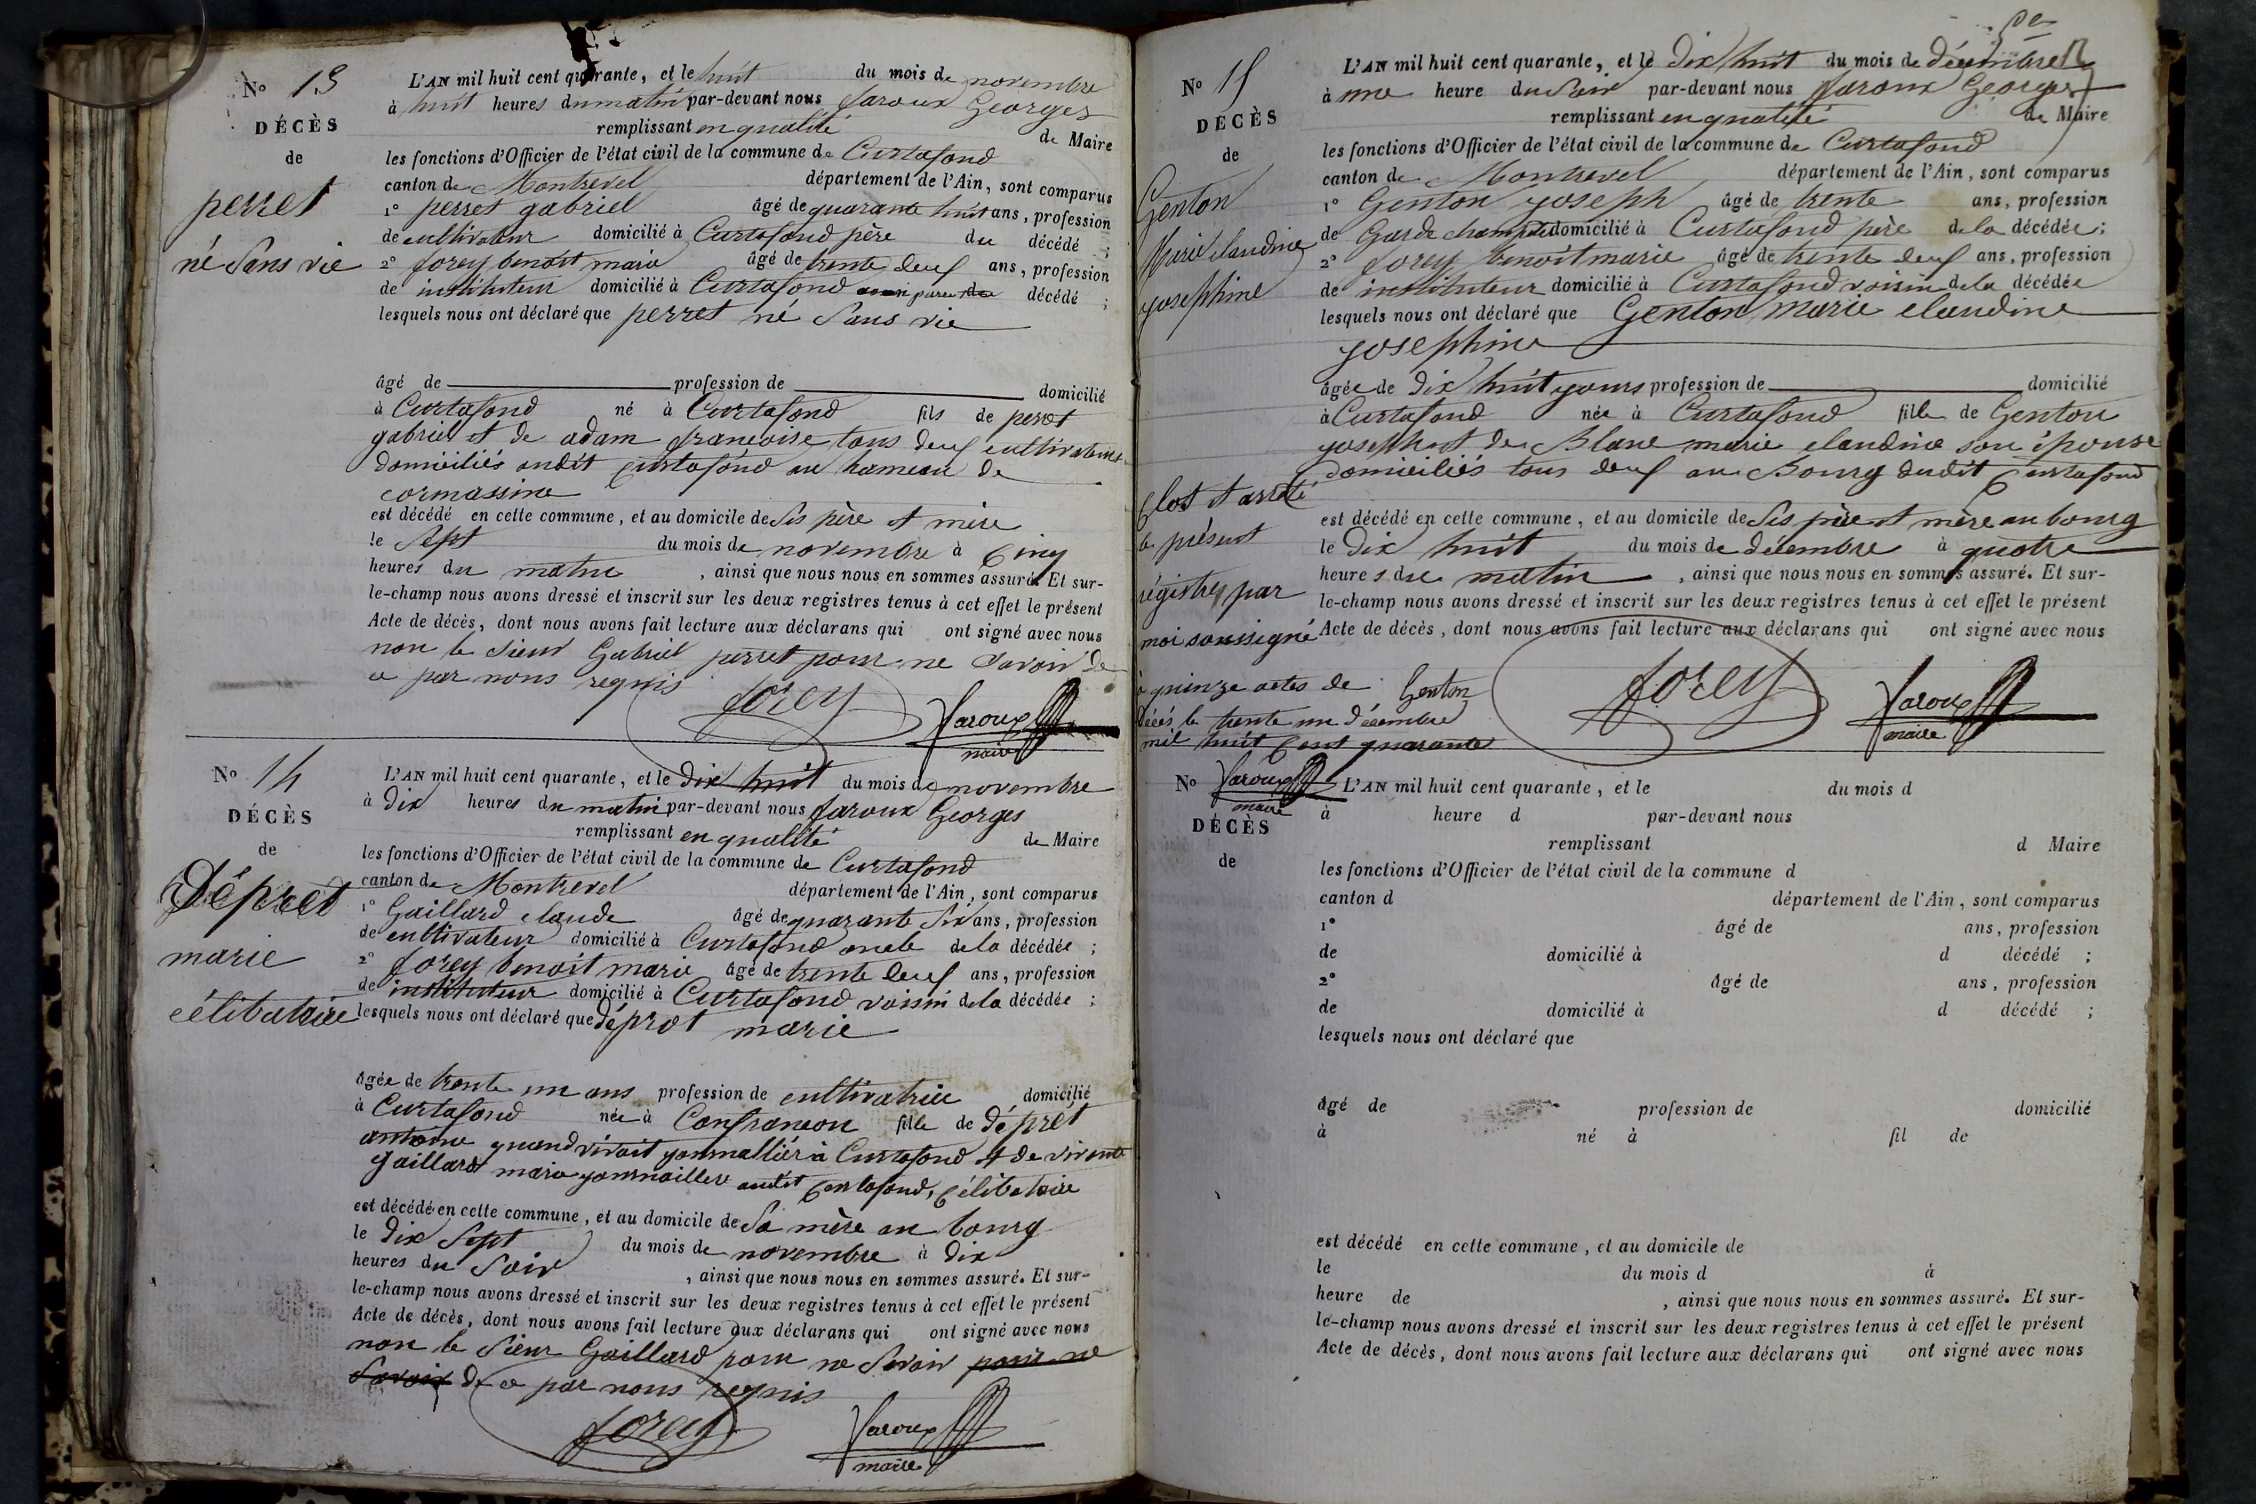 N° 13
DÉCÈS
de
perret
né Sans vie
L'AN mil huit cent quarante, et le huit du mois de novembre
à huit heures du matin par-devant nous Jaroux Georges
remplissant en qualité de Maire
les fonctions d'Officier de l'état civil de la commune de Curtafond
canton de Montrevel département de l'Ain, sont comparus
1° perret gabriel âgé de quarante huit ans, profession
de cultivateur domicilié à Curtafond père du décédé ;
2° forey benoit marie âgé de trente deux ans, profession
de instituteur domicilié à Curtafond décédé ;
lesquels nous ont déclaré que perret né Sans vie
âgé de profession de domicilié
à Curtafond né à Curtafond fils de perret
gabriel et de adam françoise tous deux cultivateurs
domiciliés audit Curtafond au hameau de
cormassine
est décédé en cette commune, et au domicile de Ses père et mère
le Sept du mois de novembre à Cinq
heures du matin, ainsi que nous nous en sommes assuré. Et sur-
le-champ nous avons dressé et inscrit sur les deux registres tenus à cet effet le présent
Acte de décès, dont nous avons fait lecture aux déclarans qui ont signé avec nous
non le Sieur Gabriel perret pour ne Savoir de
ce par nous requis
forey Jaroux
maire
N° 14
DÉCÈS
de
Dépret
marie
célibataire
L'AN mil huit cent quarante, et le dix huit du mois de novembre
à dix heures du matin par-devant nous Jaroux Georges
remplissant en qualité de Maire
les fonctions d'Officier de l'état civil de la commune de Curtafond
canton de Montrevel département de l'Ain, sont comparus
1° Gaillard claude âgé de quarante Six ans, profession
de cultivateur domicilié à Curtafond oncle de la décédée ;
2° forey benoit marie âgé de trente deux ans, profession
de instituteur domicilié à Curtafond voisin de la décédée ;
lesquels nous ont déclaré que dépret marie
âgée de trente un ans profession de cultivatrice domicilié
à Curtafond née à Confrancon fille de dépret
antoine quand vivait journallier à Curtafond et de vivante
gaillard marie journaillere audit Curtafond, Célibataire
est décédé en cette commune, et au domicile de Sa mère au bourg
le dix Sept du mois de novembre à dix
heures du Soir, ainsi que nous nous en sommes assuré. Et sur-
le-champ nous avons dressé et inscrit sur les deux registres tenus à cet effet le présent
Acte de décès, dont nous avons fait lecture aux déclarans qui ont signé avec nous
non le Sieur Gaillard pour ne Savoir pour ne
Savoir de ce par nous requis
forey Jaroux
maire
N° 15
DÉCÈS
de
Genton
Marie claudine
josephine
L'AN mil huit cent quarante, et le dix huit du mois de décembre
à une heure du Soir par-devant nous Jaroux Georges
remplissant en qualité de Maire
les fonctions d'Officier de l'état civil de la commune de Curtafond
canton de Montrevel département de l'Ain, sont comparus
1° Genton joseph âgé de trente ans, profession
de Garde champêtre domicilié à Curtafond père de la décédée ;
2° forey benoit marie âgé de trente deux ans, profession
de instituteur domicilié à Curtafond voisin de la décédée
lesquels nous ont déclaré que Genton marie claudine
josephine
âgée de dix huit jours profession de domicilié
à Curtafond née à Curtafond fille de Genton
joseph et de Blanc marie claudine son épouse
domiciliés tous deux au Bourg dudit Curtafond
est décédé en cette commune, et au domicile de Ses père et mère au bourg
le dix huit du mois de décembre à quatre
heures du matin, ainsi que nous nous en sommes assuré. Et sur-
le-champ nous avons dressé et inscrit sur les deux registres tenus à cet effet le présent
Acte de décès, dont nous avons fait lecture aux déclarans qui ont signé avec nous
Genton forey Jaroux
maire
Clos et arrêté
le présent
régistre par
moi soussigné
à quinze actes de
décès le trente un décembre
mil huit Cent quarante
Jaroux
maire
N°
DÉCÈS
de
L'AN mil huit cent quarante, et le du mois d
à heure d par-devant nous
remplissant d Maire
les fonctions d'Officier de l'état civil de la commune d
canton d département de l'Ain, sont comparus
1° âgé de ans, profession
de domicilié à d décédé ;
2° âgé de ans, profession
de domicilié à d décédé ;
lesquels nous ont déclaré que
âgé de profession de domicilié
à né à fil de
est décédé en cette commune, et au domicile de
le du mois d à
heure de, ainsi que nous nous en sommes assuré. Et sur-
le-champ nous avons dressé et inscrit sur les deux registres tenus à cet effet le présent
Acte de décès, dont nous avons fait lecture aux déclarans qui ont signé avec nous